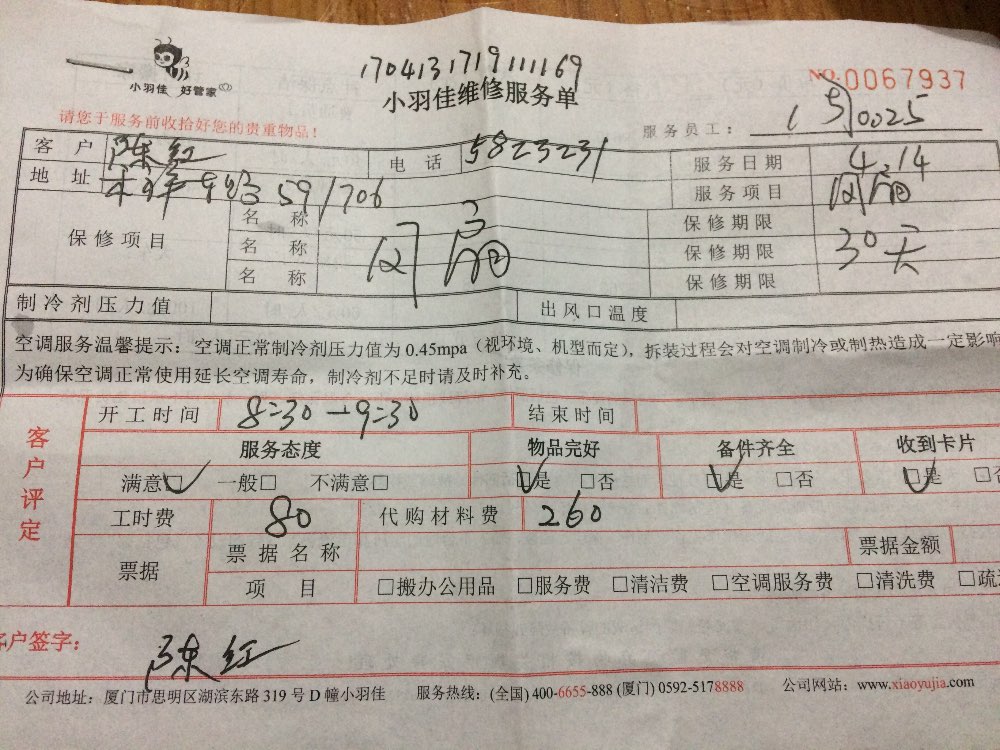 170413171911169
小羽佳 好管家
小羽佳维修服务单
NO.0067937
请您于服务前收拾好您的贵重物品！
服务员工： 0025
客户 陈红 电话 5823231 服务日期 4.14
地址 59/706 服务项目
保修项目 名称 保修期限
名称 保修期限 30天
名称 保修期限
制冷剂压力值 出风口温度
空调服务温馨提示：空调正常制冷剂压力值为0.45mpa（视环境、机型而定），拆装过程会对空调制冷或制热造成一定影响
为确保空调正常使用延长空调寿命，制冷剂不足时请及时补充。
客户评定
开工时间 8:30-9:30 结束时间
服务态度 物品完好 备件齐全 收到卡片
满意☑ 一般□ 不满意□ ☑是 □否 ☑是 □否 ☑是 □否
工时费 80 代购材料费 260
票据 票据名称 票据金额
项目 □搬办公用品 □服务费 □清洁费 □空调服务费 □清洗费 □疏
客户签字：
陈红
公司地址：厦门市思明区湖滨东路319号D幢小羽佳 服务热线：(全国)400-6655-888 (厦门)0592-5178888 公司网站：www.xiaoyujia.com